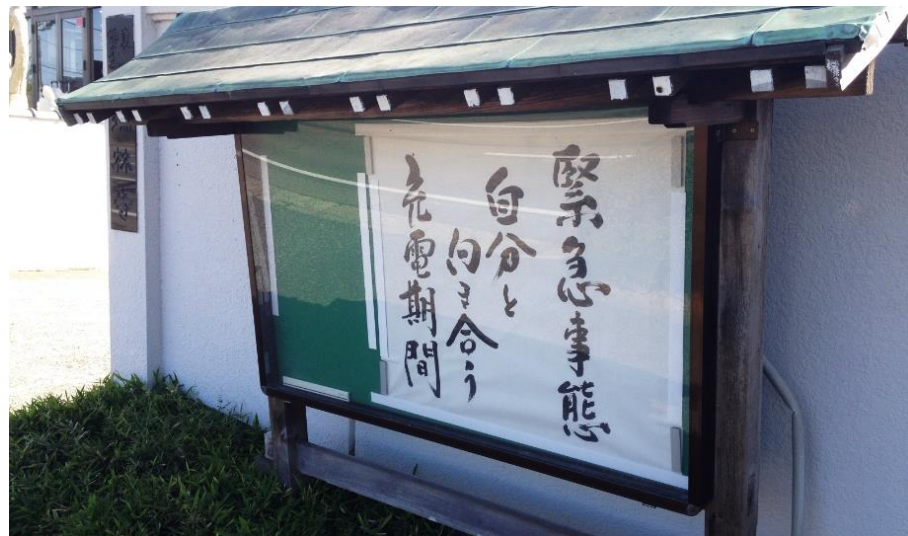 緊急事態
自分と
向き合う
充電期間